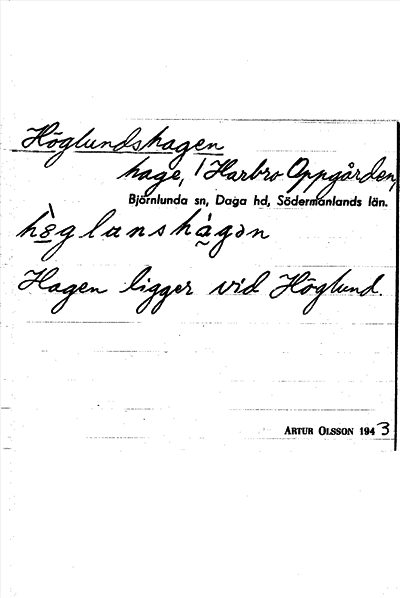 Höglundshagen
hage, / Harbro Oppgården,
Björnlunda sn, Daga hd, Södermanlands län.
hö̀glanshàgən
Hagen ligger vid Höglund.
ARTUR OLSSON 1943